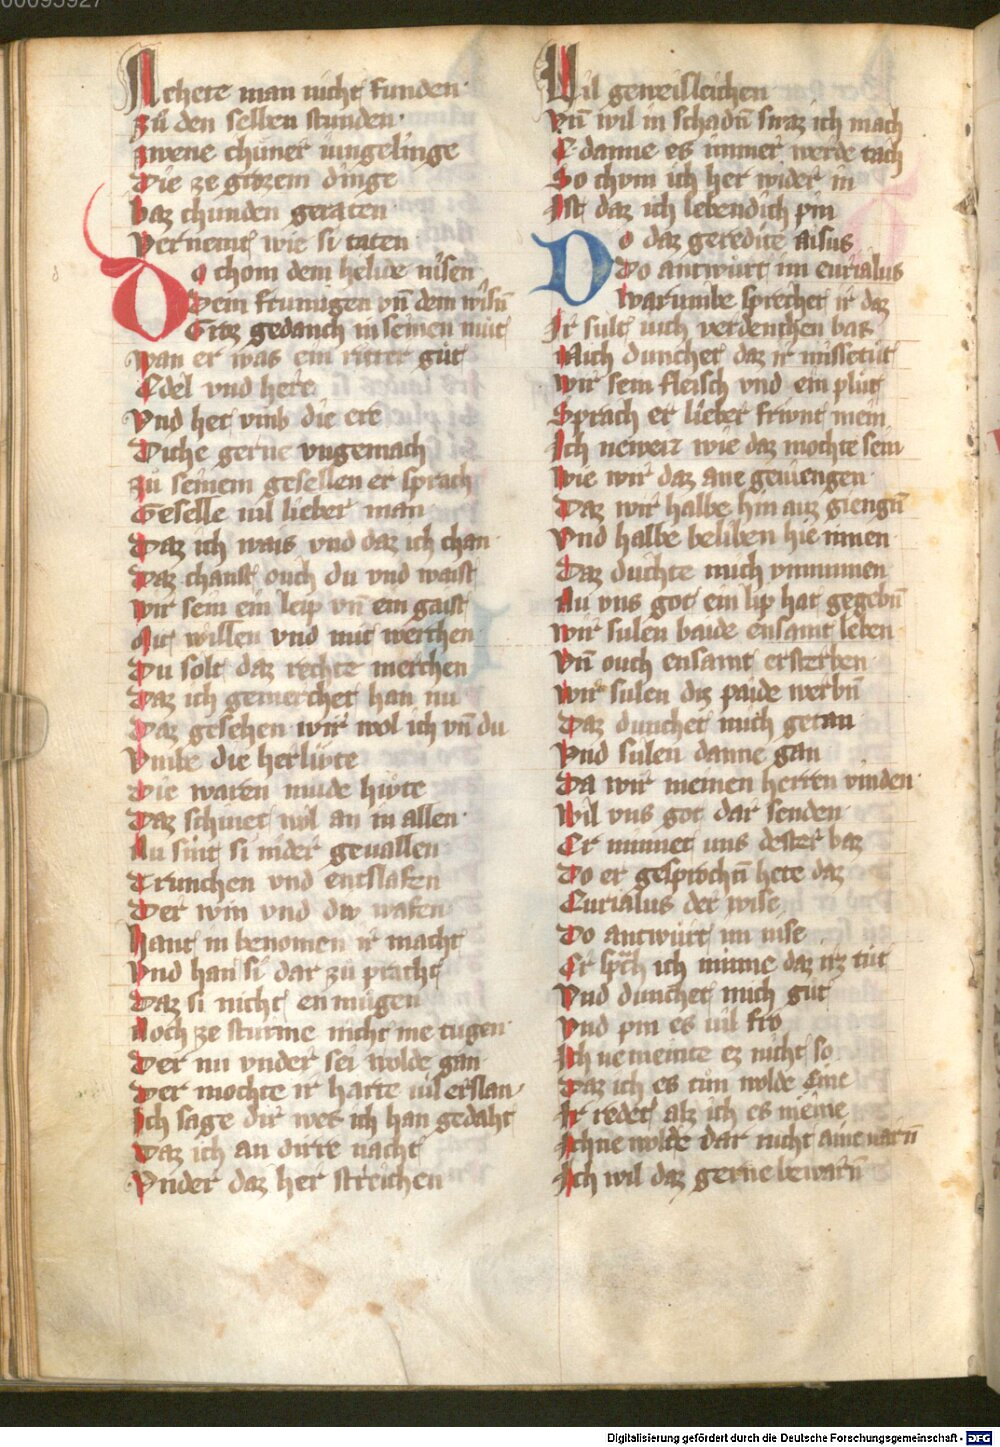 00095927
Achete man nicht funden
zů den selben stunden
zwene chuner iungelinge
Die ze grozem dinge
baz chunden geraten
Vernemt wie si taten
Do chom dem helide nisen
Dem frumigen vn̄ dem wisn̄
Groz gedanch in seinen mut
wan er was ein ritter gůt
Edel vnd here
Vnd het vmb die ere
Diche gerne vngemach
zů seinem gesellen er sprach
Geselle vil lieber man
Daz ich wais vnd daz ich chan
Daz chanst ouch du vnd waist
wir sein ein leip vn̄ ein gaist
Mit willen vnd mit werchen
Du solt daz rechte merchen
Daz ich gemerchet han nu
Daz gesehen wir wol ich vn̄ du
Vmbe die herlivte
Die waren mude hivte
Daz schinet wol an in allen
Nu sint si nider geuallen
Trunchen vnd entslafen
Der win vnd div wafen
Hant in benomen ir macht
Vnd han si dar zů pracht
Daz si nicht en mugen
Noch ze sturme nicht me tugen
Der nu vnder sei wolde gan
Der mochte ir harte vil erslan
Ich sage dir wes ich han gedaht
Daz ich an dirre nacht
Vnder daz her streichen
Wil gewisleichen
Vn̄ wil in schadn̄ swaz ich mach
E danne es immer werde tach
So chvm ich her wider in
Ist daz ich lebendich pin
Do daz geredite aisus
Do antwurt im eurialus
Warumbe sprechet ir daz
Ir sult iuch verdenchen bas
Mich dunchet daz ir missetut
wir sein fleisch vnd ein plut
Sprach er lieber friunt mein
Ich neweiz wie daz mochte sein
wie wir daz ane geuiengen
Daz wir halbe hin auz giengn̄
Vnd halbe beliben hie innen
Daz duchte mich vnminnen
Nu vns got ein lip hat gegebn̄
wir sulen baide ensamt leben
Vn̄ ouch ensamt ersterben
wir sulen diz paide werbn̄
Daz dunchet mich getan
Vnd sulen danne gan
Da wir meinen herren vinden
Wil vns got dar senden
Er minnet uns dester baz
Do er gesprochn̄ hete daz
Eurialus der wise
Do antwurt im nise
Er sp̄ch ich minne daz irz tůt
Vnd dunchet mich gůt
Vnd pin es vil fro
Ich ne meinte ez nicht so
Daz ich es tůn wolde eine
Ir redet alz ich es meine
Ichne wolde dar nicht aine varn̄
Ich wil daz gerne bewarn̄
Digitalisierung gefördert durch die Deutsche Forschungsgemeinschaft - DFG